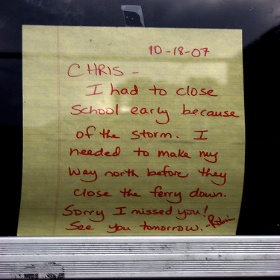 10-18-07
CHRIS -
I had to close
School early because
of the storm. I
needed to make my
way north before they
close the ferry down.
Sorry I missed you!
See you tomorrow. Robin